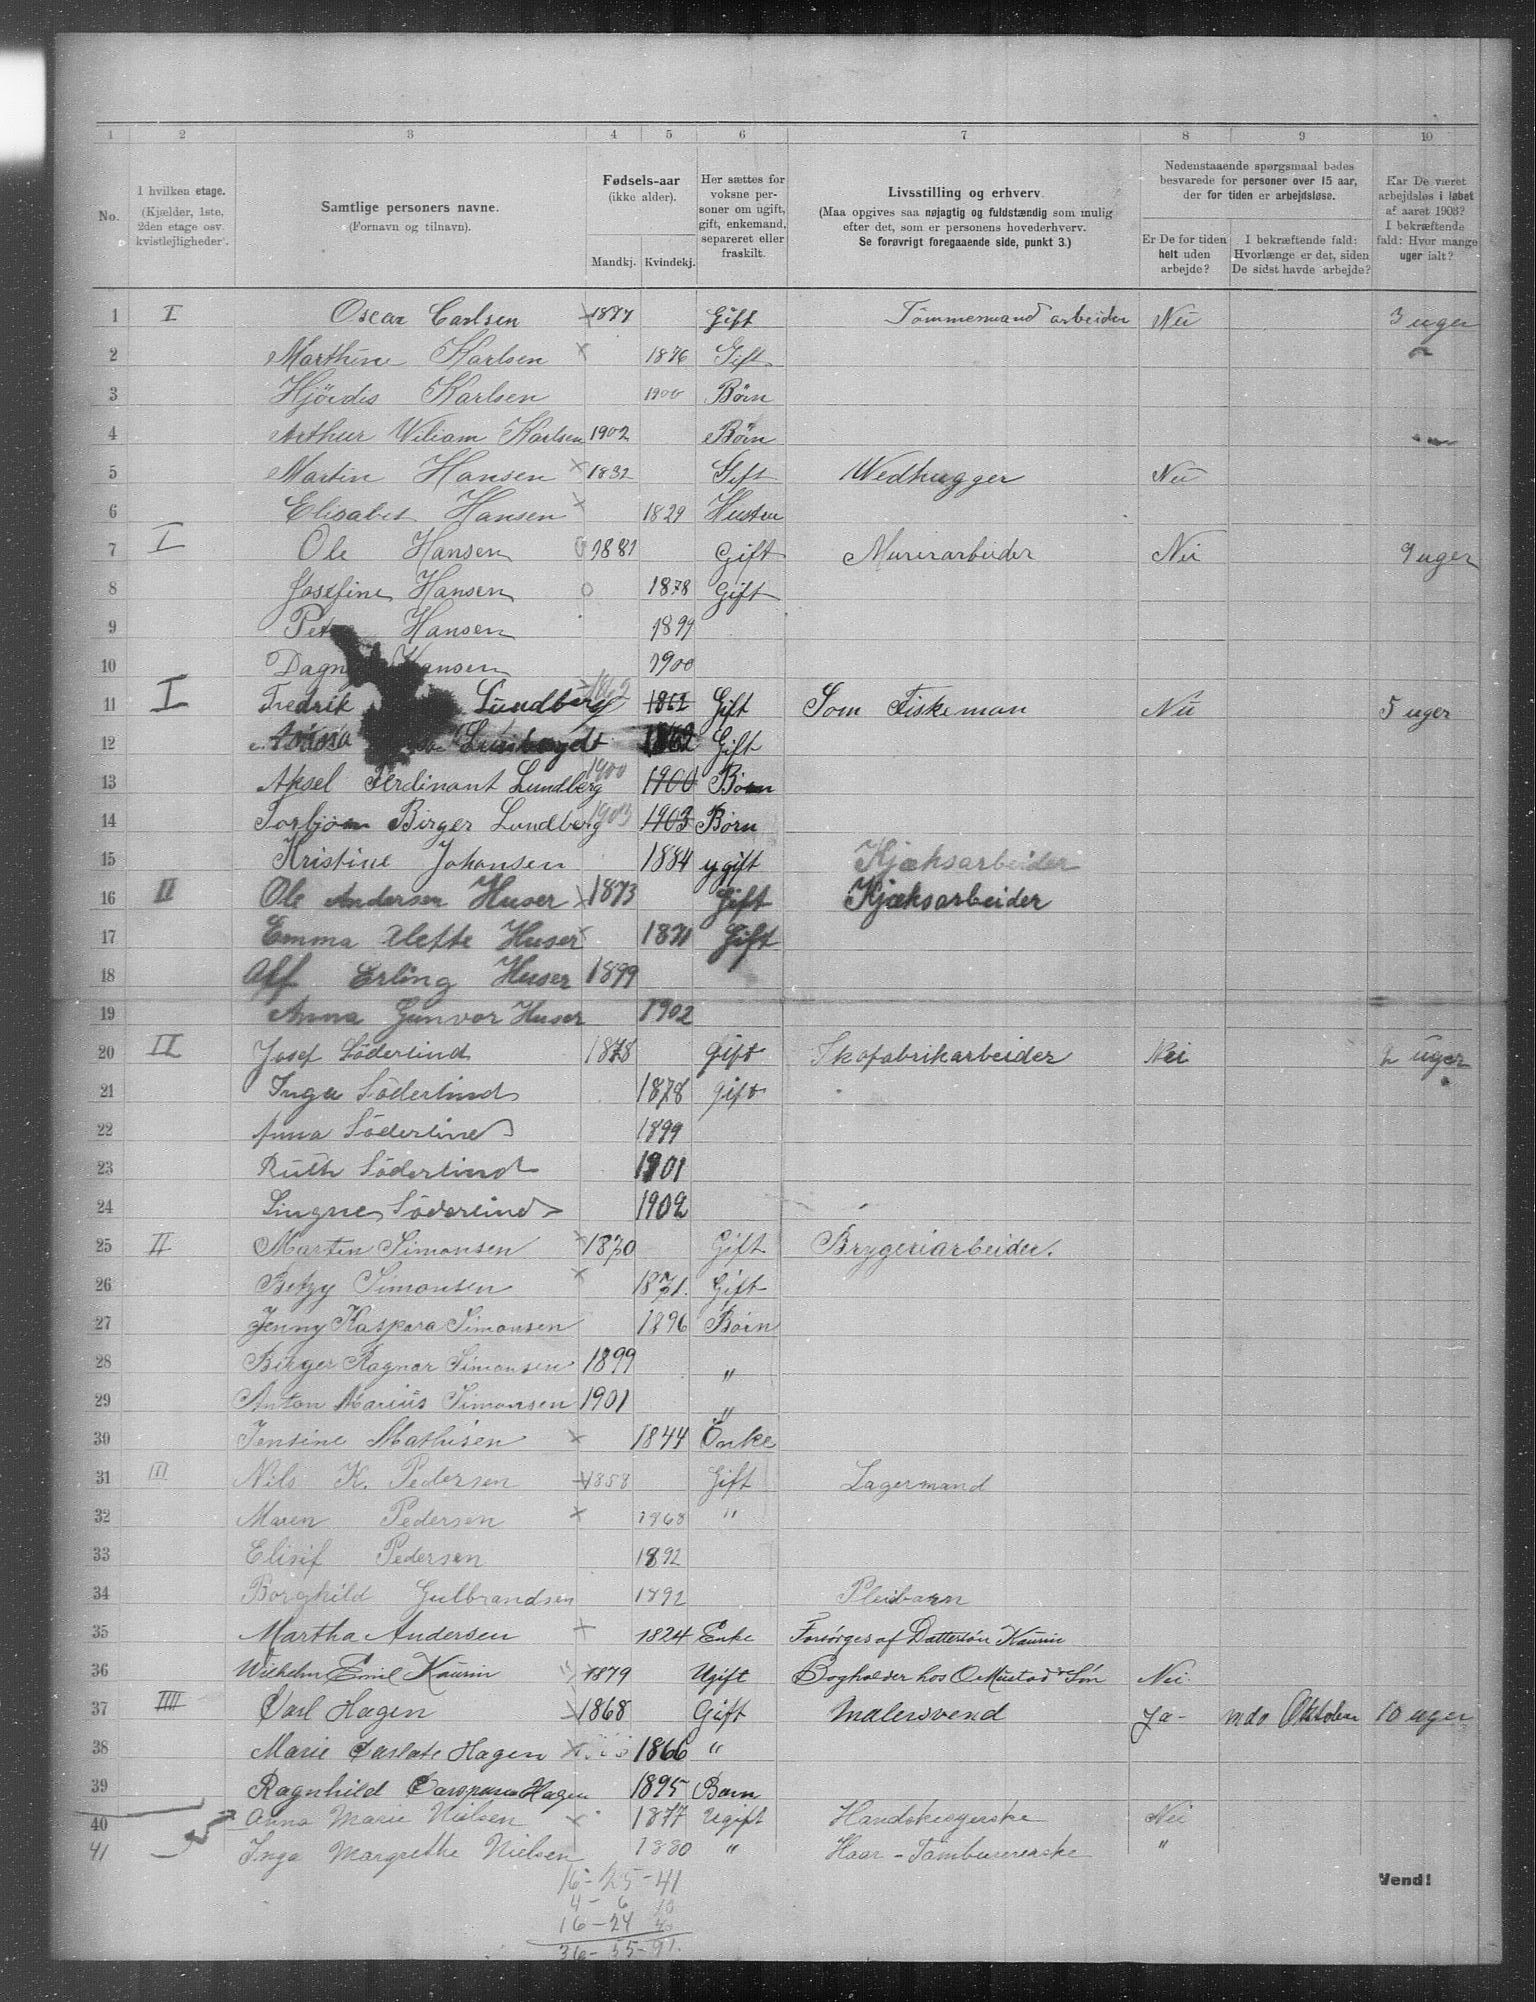 1 2 3 4 5 6 7 8 9 10
No.
I hvilken etage.
(Kjælder, 1ste, 2den etage osv. kvistleiligheder).
Samtlige personers navne.
(Fornavn og tilnavn).
Fødsels-aar
(ikke alder).
Mandkj. Kvindekj.
Her sættes for voksne personer om ugift, gift, enkemand, separeret eller fraskilt.
Livsstilling og erhverv.
(Maa opgives saa nøjagtig og fuldstændig som mulig efter det, som er personens hovederhverv.
Se forøvrigt foregaaende side, punkt 3.)
Nedenstaaende spørgsmaal bedes besvarede for personer over 15 aar, der for tiden er arbejdsløse.
Er De for tiden helt uden arbejde?
I bekræftende fald: Hvorlænge er det, siden De sidst havde arbejde?
Har De været arbejdsløs i løbet af aaret 1903? I bekræftende fald: Hvor mange uger ialt?
1 I Oscar Carlsen × 1877 Gift Tømmermand arbeider Nei 3 uger
2 Marthine Karlsen × 1876 Gift
3 Hjördis Karlsen 1900 Börn
4 Arthur Wiliam Karlsen 1902 Börn
5 Martin Hansen × 1832 Gift Wedhugger Nei
6 Elisabet Hansen × 1829 Hustru
7 I Ole Hansen 0 1881 Gift Murerarbeider Nei 9 uger
8 Josefine Hansen 0 1878 Gift
9 Hansen 1899
10 Dagny Hansen 1900
11 I Fredrik Lundberg 1862 1862 Gift Som Fiskeman Nei 5 uger
12 1862 Gift
13 Aksel Ferdinant Lundberg 1900 1900 Börn
14 Torbjörn Birger Lundberg 1903 1903 Börn
15 Kristine Johansen 1884 ygift Kjæksarbeider
16 II Ole Andersen Huser × 1873 Gift Kjæksarbeider
17 Emma Alette Huser × 1871 Gift
18 Erling Huser 1899
19 Anna Gunvor Huser 1902
20 II Josef Söderlind 1878 Gift Skofabrikarbeider Nei 2 uger
21 Inga Söderlind 1878 Gift
22 Anna Söderlind 1899
23 Ruth Söderlind 1901
24 Singne Söderlind 1902
25 II Martin Simonsen × 1870 Gift Brygeriarbeider.
26 Betzy Simonsen × 1871. Gift
27 Jenny Kaspara Simonsen 1896 Börn
28 Birger Ragnar Simonsen 1899 "
29 Anton Marius Simonsen 1901 "
30 Jensine Mathisen × 1844 Enke
31 III Nils K. Pedersen × 1858 Gift Lagermand
32 Maren Pedersen × 1868 "
33 Elisif Pedersen 1892
34 Borghild Gulbrandsen 1892 Pleibarn
35 Martha Andersen × 1824 Enke Forsørges af Dattersøn Kaurin
36 Wilhelm Emil Kaurin × 1879 Ugift Bogholder hos O Mustad & Søn Nei
37 IIII Carl Hagen × 1868 Gift Malersvend Ja - mdo Oktober 10 uger
38 Marie Hagen × 1866 "
39 Ragnhild Hagen 1895 Barn
40 Anna Marie Nielsen × 1877 Ugift Handskesyerske Nei
41 Inga Margrethe Nielsen 1880 " Haar - "
16 - 25 - 41
4 - 6 10
16 - 24 40
36 - 55 - 91.
Vend!